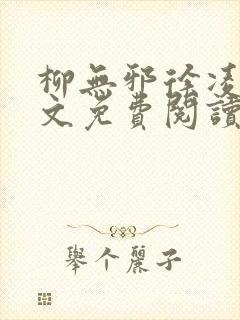 柳無邪徐凌
文免費閱讀
舉个麗子